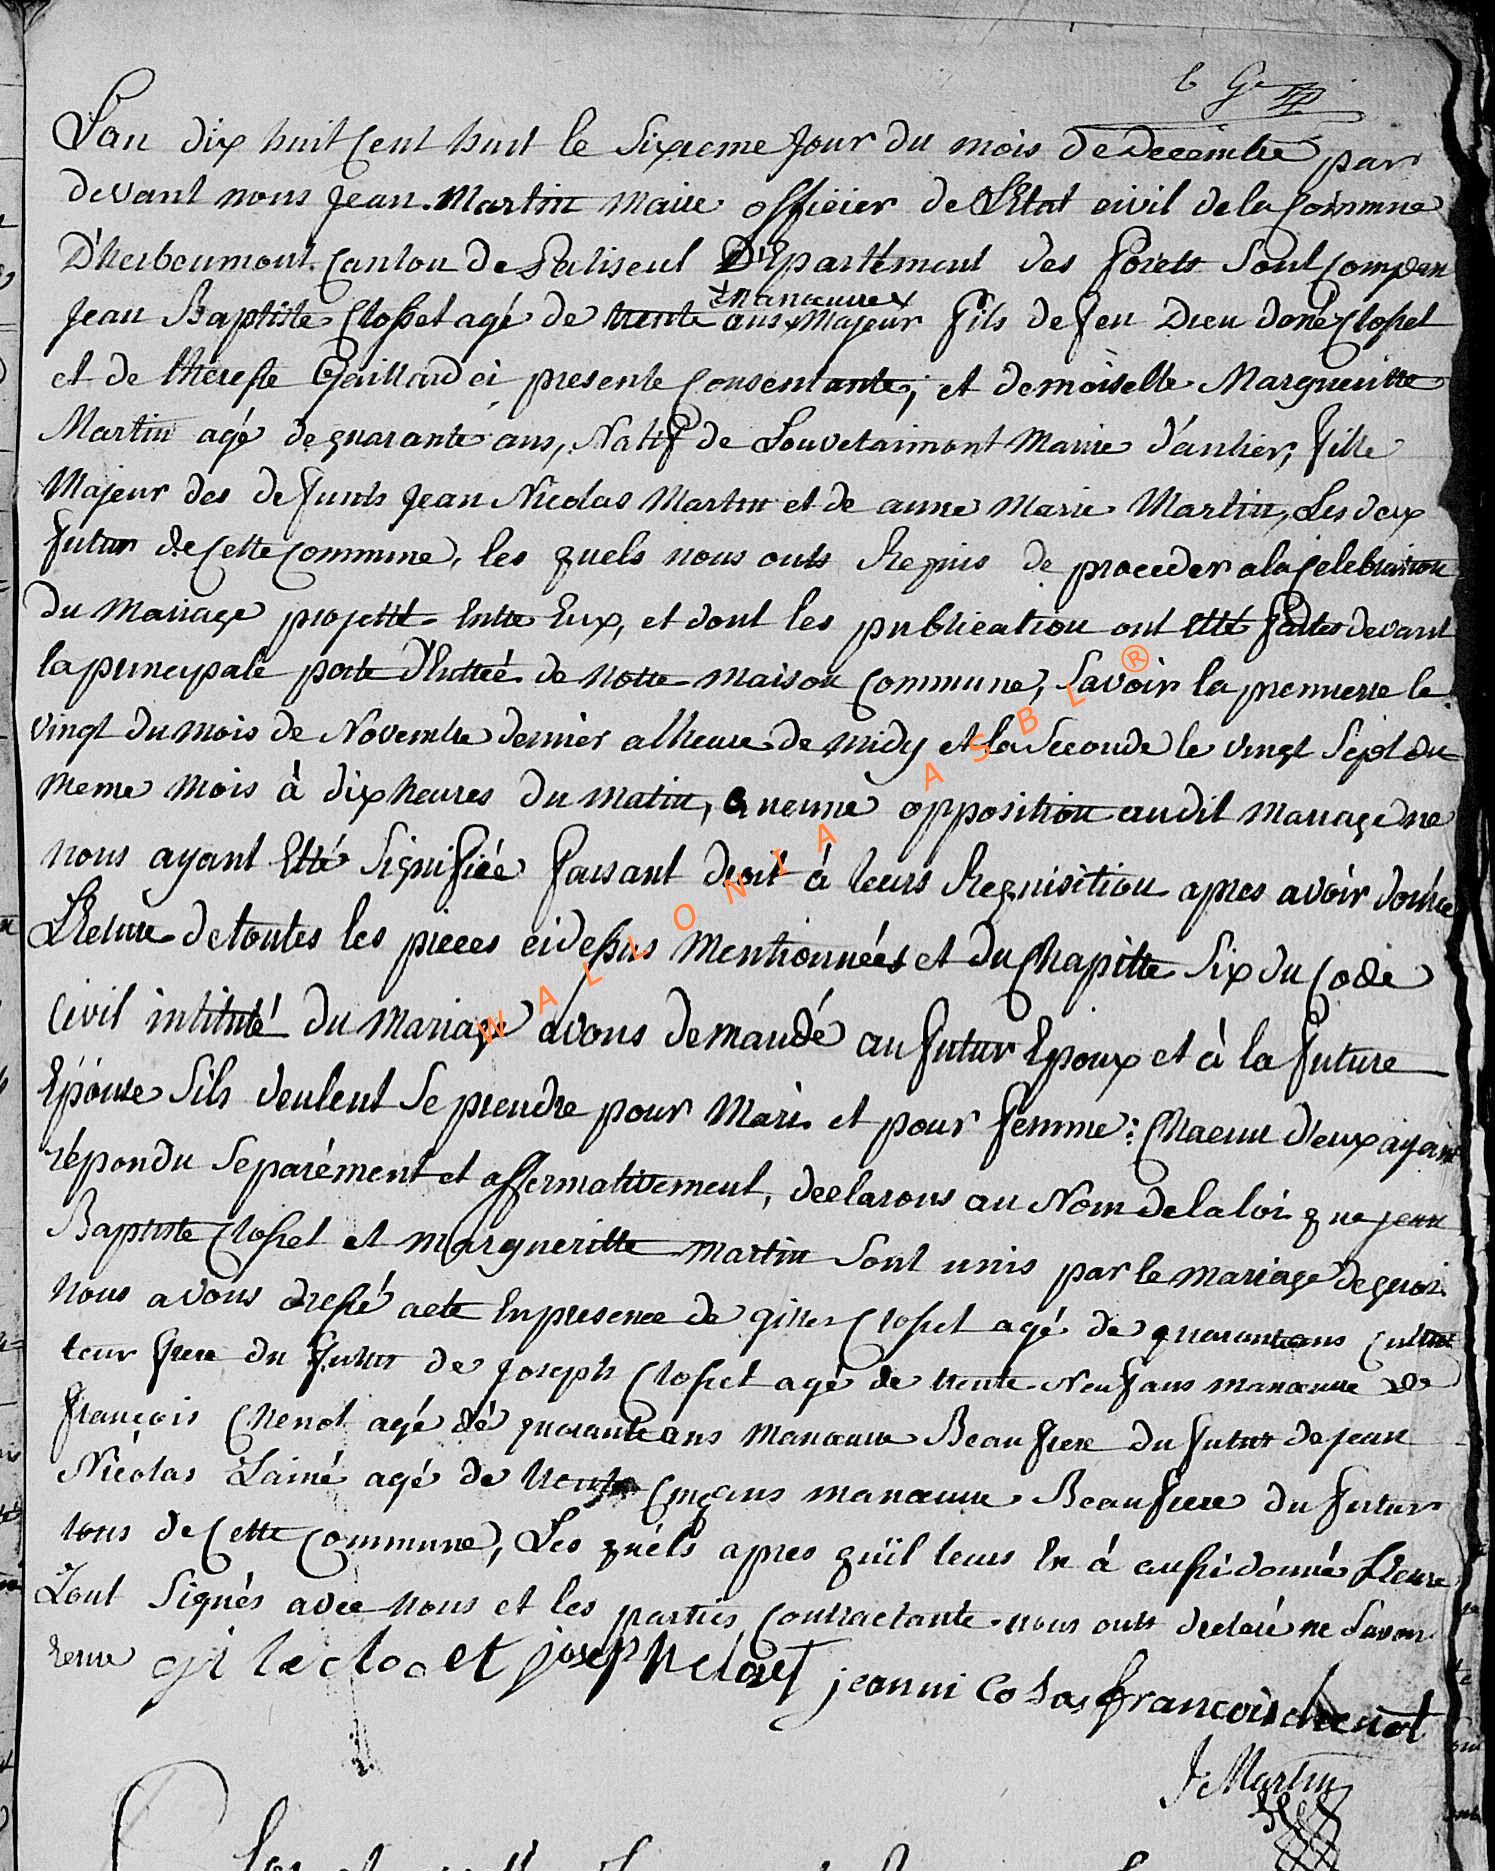 L'an dix huit Cent huit le Sixieme Jour du mois de decembre par
devant nous Jean Martin Maire officier de L'Etat civil de la Commune
D'herbeumont Canton de Paliseul Département des forets Sont Comparu
manœuvre
Jean Baptiste Closset agé de trente ans Majeur fils de feu Dieu doné Closset
et de therese Gaillard ci presente Consentante, et demoiselle Margueritte
Martin agé de quarante ans, Natif de Louvetaimont Mairie d'anlier, fille
Majeur des defunts Jean Nicolas Martin et de anne Marie Martin, Les deux
futur de Cette Commune, les quels nous onts Requis de proceder a la Celebration
du Mariage projetté Entre Eux, et dont les publication ont Etté faites devant
la principale porte d'Entreé de Notre Maison Commune, Savoir la premiere le
vingt du Mois de Novembre dernier a lheure de midy et la Seconde le vingt Sept du
meme Mois à dix heures du Matin, aucune opposition audit Mariage ne
nous ayant Etté Signifiée faisant droit à leurs Requisition apres avoir donnée
LEcture de toutes les pieces ci dessus Mentionnées et du Chapitte Six du Code
Civil intitulé du Mariage avons demandé au futur Epoux et à la future
Epouse Sils veulent Se prendre pour Mari et pour femme: Chacun d'eux ayant
répondu Separément et affermativement, declarons au Nom de la loi que jean
Baptiste Closset et Margueritte Martin Sont unis par le Mariage de quoi
Nous avons dressé acte En presence de gilles Closset agé de quarante ans Cultiva
teur frere du futur de joseph Closset agé de trente Neuf ans manœuvre de
françois Chenot agé dé quarante ans Manœuvre Beau frere du futur de jean
Nicolas Lainé agé de trente Cinq ans manœuvre Beau frere du futur
tous de Cette Commune, Les quéls apres qu'il leurs En à aussi donné LEcture
Lont Signés avec Nous et les parties Contractante nous onts declaré ne Savoir
gi le closet joseph closet jeanni colas francois chenot
J. Martin
WALLONIA ASBL ®